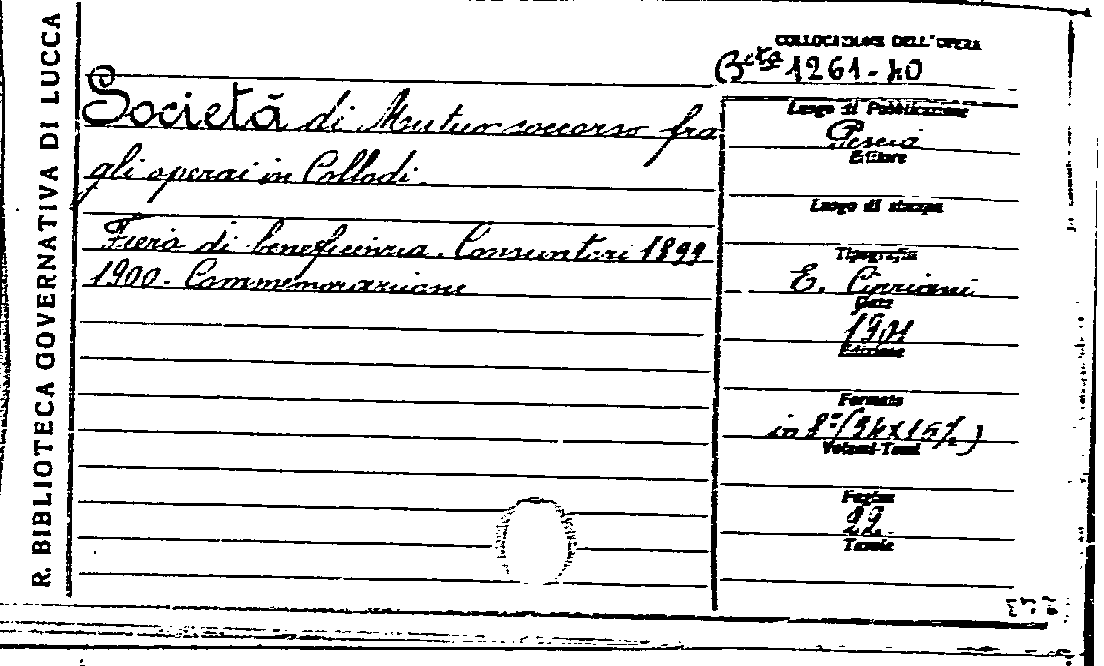 R. BIBLIOTECA GOVERNATIVA DI LUCCA
COLLOCAZIONE DELL'OPERA
B.ta 1261-40
Società di Mutuo soccorso fra
gli operai in Collodi.
Fiera di beneficenza. Consuntori 1899
1900. Commemorazione
Luogo di Pubblicazione
Pescia
Editore
Luogo di stampa
Tipografia
E. Cipriani
Data
1901
Edizione
Formato
in 8º (24x15½)
Volumi-Tomi
Pagine
22
Tavole